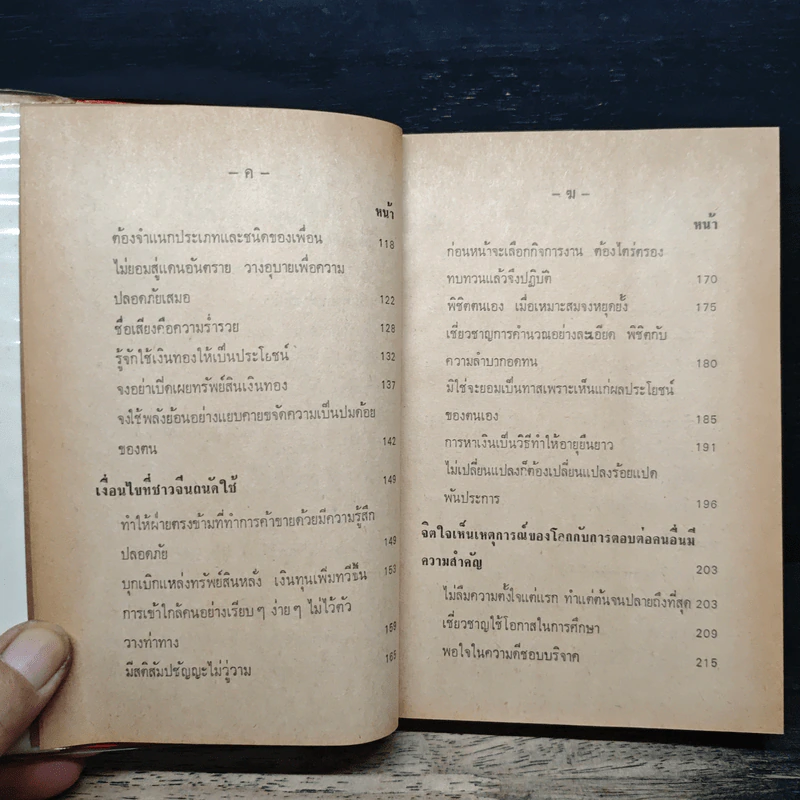 – ค –
หน้า
ต้องจำแนกประเภทและชนิดของเพื่อน 118
ไม่ยอมสู่แดนอันตราย วางอุบายเพื่อความ
ปลอดภัยเสมอ 122
ชื่อเสียงคือความร่ำรวย 128
รู้จักใช้เงินทองให้เป็นประโยชน์ 132
จงอย่าเปิดเผยทรัพย์สินเงินทอง 137
จงใช้พลังย้อนอย่างแยบคายขจัดความเป็นปมด้อย
ของตน 142
เงื่อนไขที่ชาวจีนถนัดใช้ 149
ทำให้ฝ่ายตรงข้ามที่ทำการค้าขายด้วยมีความรู้สึก
ปลอดภัย 149
บุกเบิกแหล่งทรัพย์สินหลั่ง เงินทุนเพิ่มทวีขึ้น 153
การเข้าใกล้คนอย่างเรียบๆ ง่ายๆ ไม่ไว้ตัว
วางท่าทาง 159
มีสติสัมปชัญญะไม่วู่วาม 165
– ฆ –
หน้า
ก่อนหน้าจะเลือกกิจการงาน ต้องไตร่ตรอง
ทบทวนแล้วจึงปฏิบัติ 170
พิชิตตนเอง เมื่อเหมาะสมจงหยุดยั้ง 175
เชี่ยวชาญการคำนวณอย่างละเอียด พิชิตกับ
ความลำบากอดทน 180
มิใช่จะยอมเป็นทาสเพราะเห็นแก่ผลประโยชน์
ของตนเอง 185
การหาเงินเป็นวิธีทำให้อายุยืนยาว 191
ไม่เปลี่ยนแปลงก็ต้องเปลี่ยนแปลงร้อยแปด
พันประการ 196
จิตใจเห็นเหตุการณ์ของโลกกับการตอบต่อคนอื่นมี
ความสำคัญ 203
ไม่ลืมความตั้งใจแต่แรก ทำแต่ต้นจนปลายถึงที่สุด 203
เชี่ยวชาญใช้โอกาสในการศึกษา 209
พอใจในความดีชอบบริจาค 215